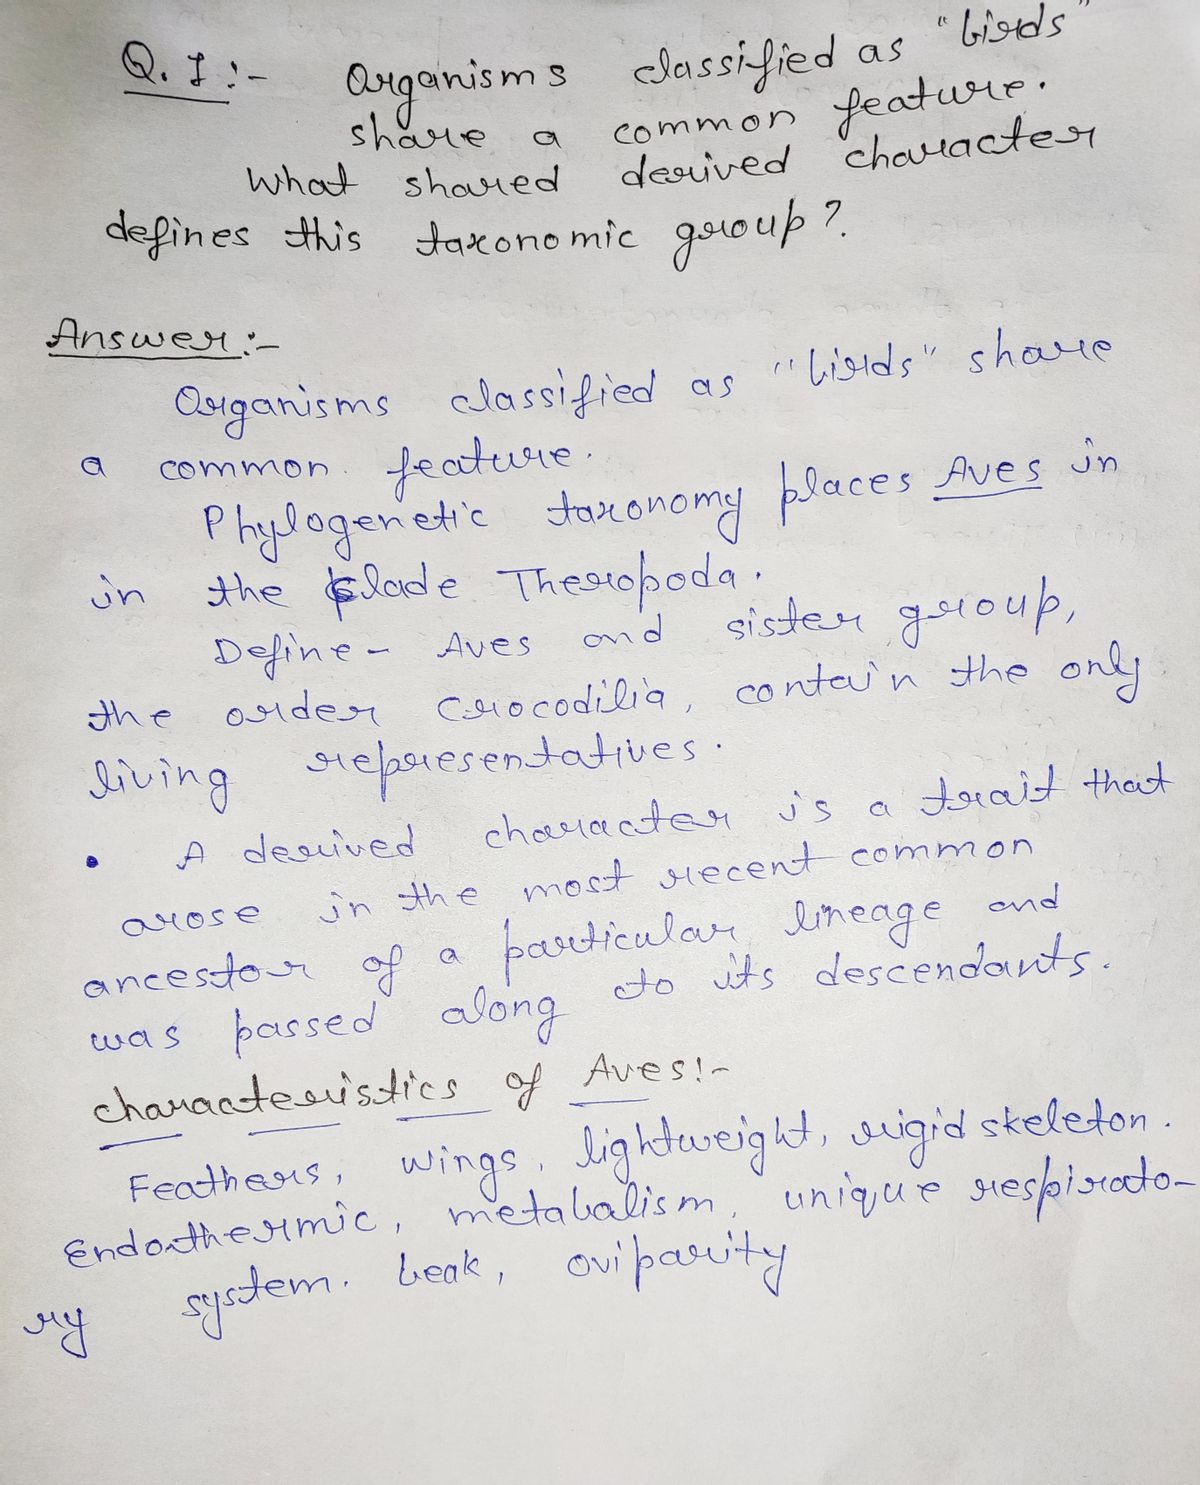 Q. I :-
Organisms classified as "birds"
share a common feature.
What shared derived character
defines this taxonomic group ?
Answer :-
Organisms classified as "birds" share
a common. feature.
Phylogenetic taxonomy places Aves in
in the clade Theropoda.
Define - Aves and sister group,
the order Crocodilia, contain the only
living representatives.
• A derived character is a trait that
arose in the most recent common
ancestor of a particular lineage and
was passed along to its descendants.
characteristics of Aves:-
Feathers, wings, lightweight, rigid skeleton.
Endothermic, metabalism, unique respirato-
ry system. beak, oviparity